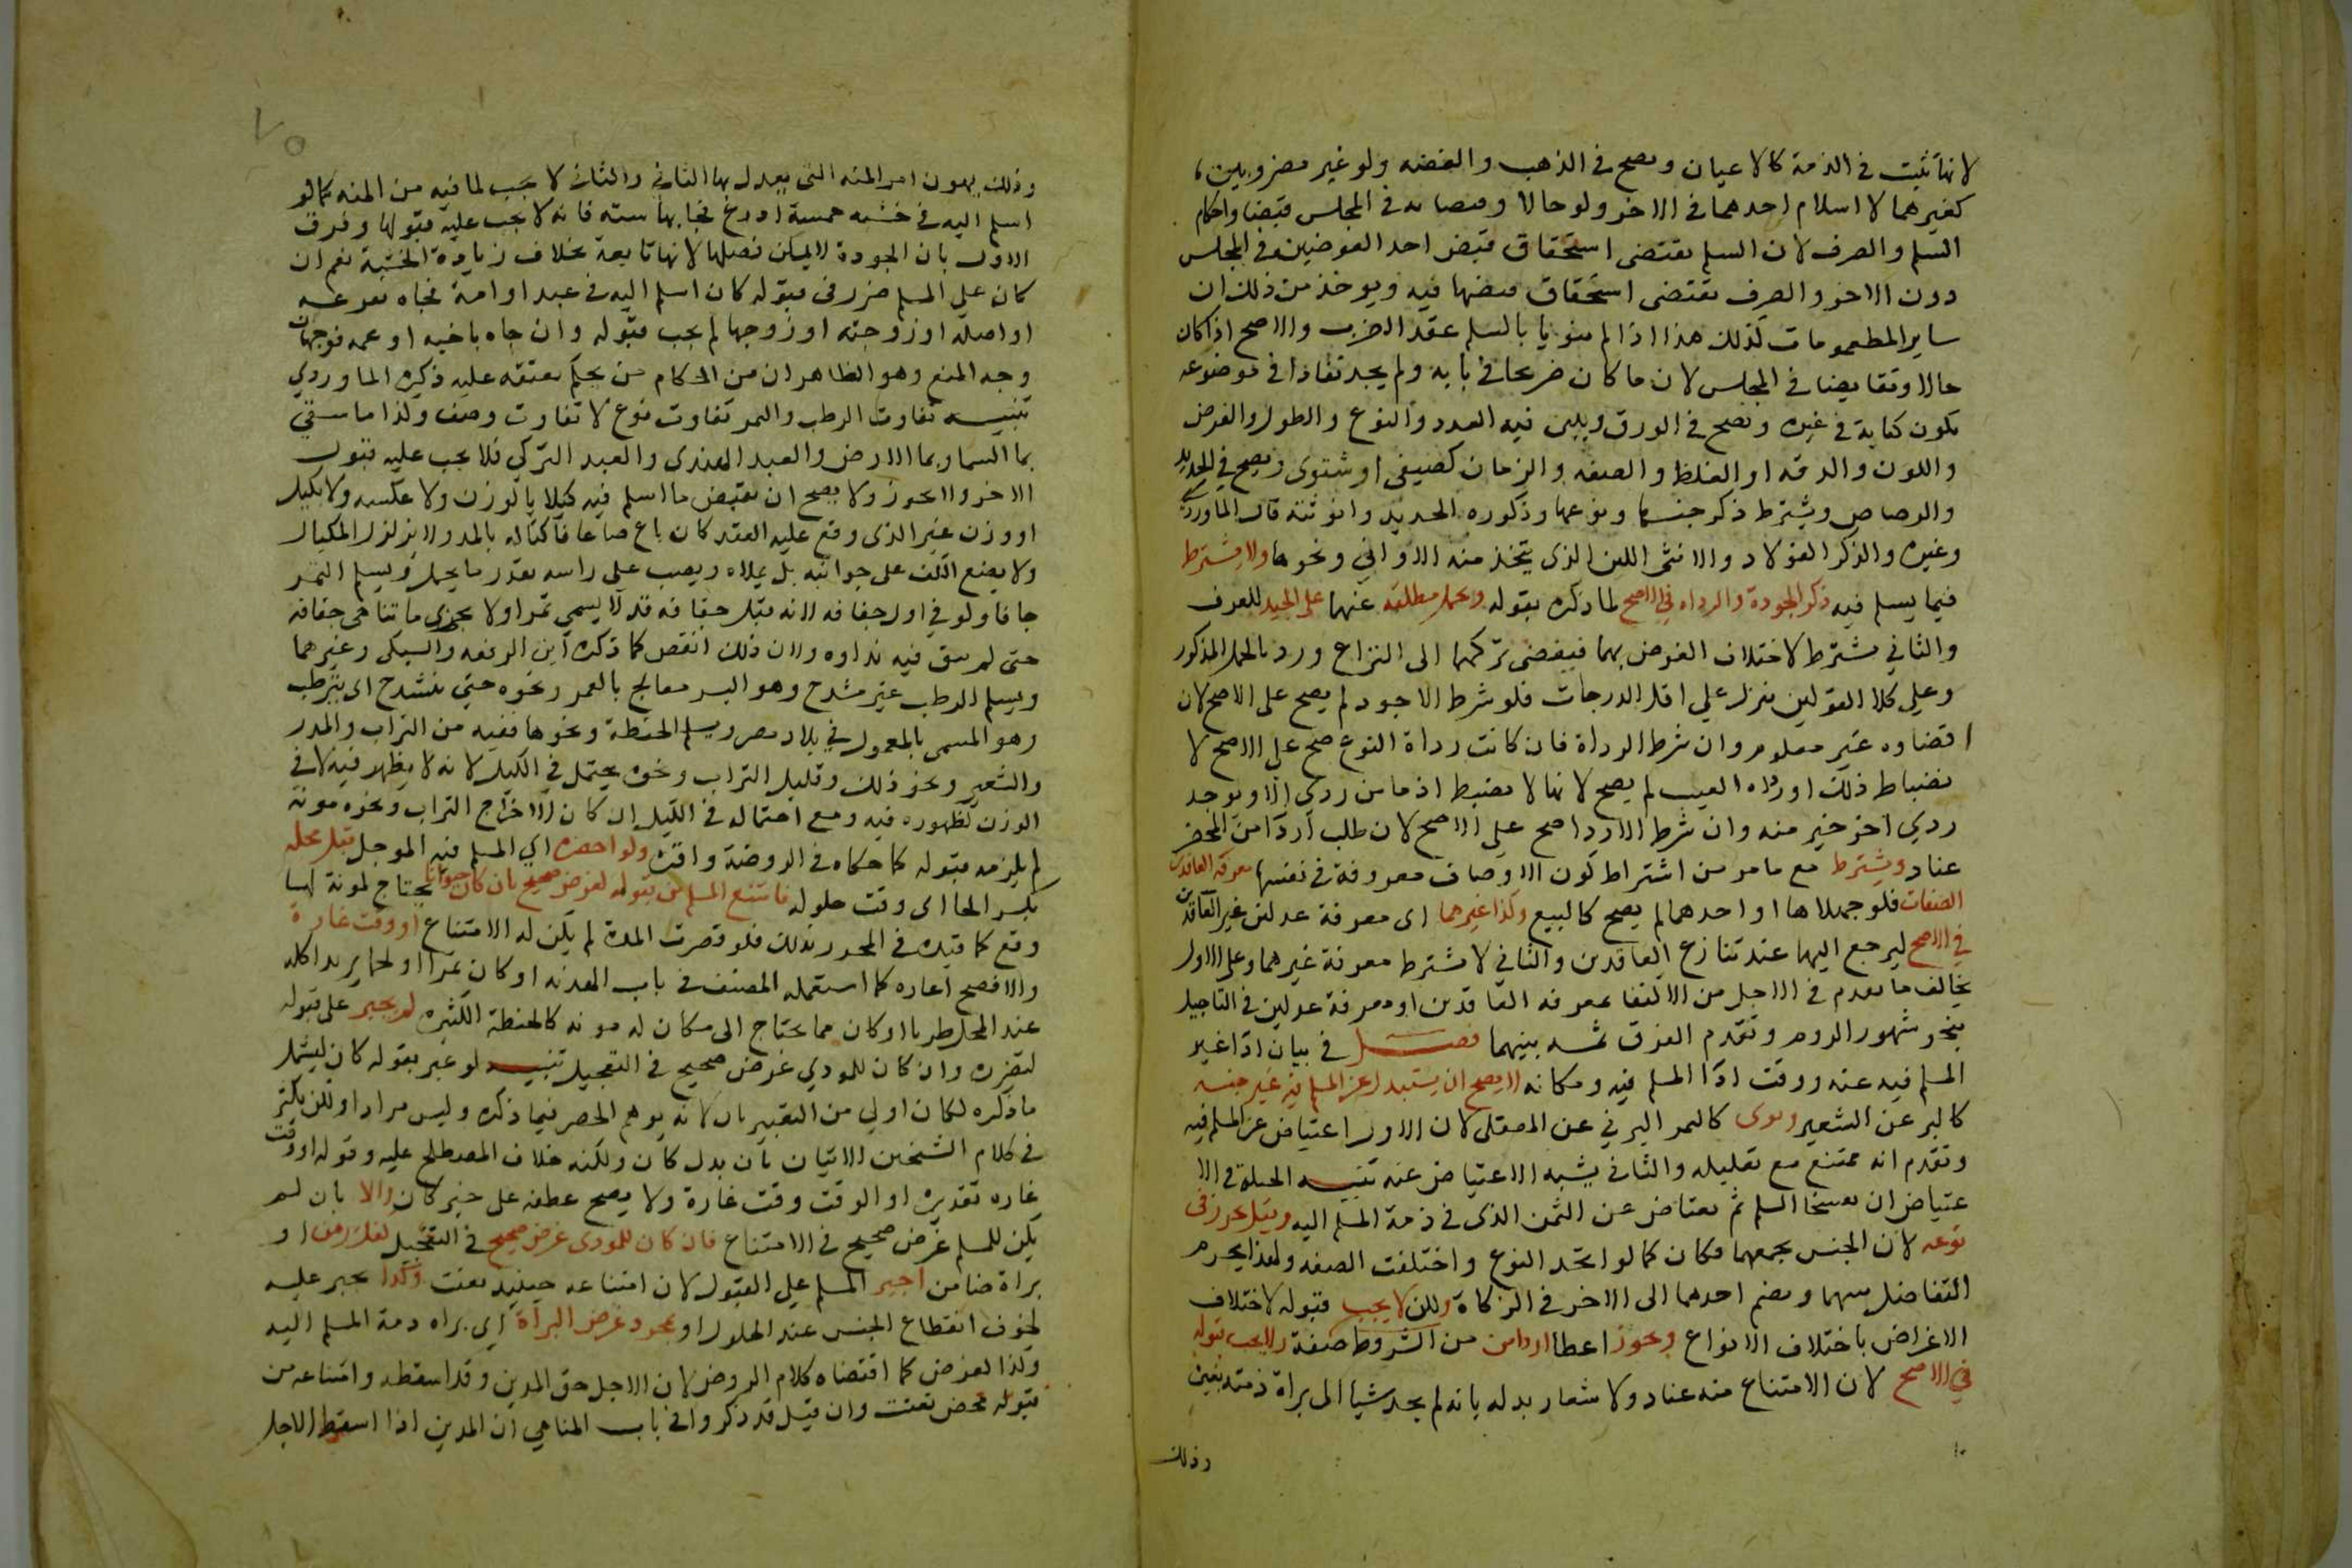 لانها تثبت في الذمة كالاعيان ويصح في الذهب والفضه ولو غير مضروبين
كغيرهما لا اسلام احدهما في الاخر ولو حالا وتقابضا في المجلس لتضاد احكام
السلم والصرف لان السلم يقتضى استحقاق قبض احد العوضين في المجلس
دون الاخر والصرف يقتضى استحقاق قبضهما فيه ويوخذ من ذلك ان
ساير المطعومات كذلك هذا اذا لم ينويا بالسلم عقد الصرف والاصح اذا كان
حالا وتقابضا في المجلس لان ما كان صريحا في بابه ولم يجد نفاذا في موضوعه
يكون كناية في غيره ويصح في الورق ويبين فيه العدد والنوع والطول والعرض
واللون والدقه او الغلظ والصنعه والزمان كصيفى او شتوى ويصح في الحديد
والرصاص ويشترط ذكر جنسها ونوعها وذكوره الحديد وانوثته قال الماوردي
وغيره والذكر الفولاد والانثى اللين الذى يتخذ منه الاوانى ونحوها ولا يشترط
فيما يسلم فيه ذكر الجودة والرداه في الاصح لما ذكره بقوله ويحمل مطلقه عنهما على الجيد للعرف
والثاني يشترط لاختلاف الغرض بهما فيفضى تركهما الى النزاع ورد بالحمل المذكور
وعلى كلا القولين ينزل على اقل الدرجات فلو شرط الاجود لم يصح على الاصح لان
اقصاه غير معلوم وان شرط الرداة فان كانت رداة النوع صح على الاصح لا
نضباط ذلك او رداه العيب لم يصح لانها لا تنضبط اذ ما من ردي الا ويوجد
ردي اخر خير منه وان شرط الاردا صح على الاصح لان طلب اردا من المحضر
عناد ويشترط مع ما مر من اشتراط كون الاوصاف معروفة في نفسها معرفه العاقدين
الصفات فلو جهلاها او احدهما لم يصح كالبيع وكذا غيرهما اى معرفة عدلين غير العاقدين
في الاصح ليرجع اليهما عند تنازع العاقدين والثاني لا يشترط معرفة غيرهما وعلى الاول
يخالف ما تقدم في الاجل من الاكتفا بمعرفه العاقدين او معرفة عدلين في التاجيل
بنحو شهور الروم وتقدم الفرق ثمه بينهما فصل في بيان اداء غير
المسلم فيه عنه ووقت اداء المسلم فيه ومكانه لا يصح ان يستبدل عن المسلم فيه غير جنسه
كالبر عن الشعير ونوعه كالتمر البرني عن المعقلى لان الاول اعتياض عن المسلم فيه
وتقدم انه ممتنع مع تعليله والثاني يشبه الاعتياض عنه تنبيه الحيلة في الا
عتياض ان يفسخا السلم ثم يعتاض عن الثمن الذى في ذمة المسلم اليه وقيل يجوز في
نوعه لان الجنس يجمعهما فكان كما لو اتحد النوع واختلفت الصفه ولهذا يحرم
التفاضل بينهما ويضم احدهما الى الاخر في الزكاة ولكن لا يجب قبوله لاختلاف
الاغراض باختلاف الانواع ويجوز اعطا اردا من من المشروط صفة ولا يجب قبوله
في الاصح لان الامتناع منه عناد ولاشعار بذله بانه لم يجد شيا الى براة ذمته بغيره
وذلك
٧٥
وذلك يهون امر المنه التى يعلل بها الثاني والثاني لا يجب لما فيه من المنه كما لو
اسلم اليه في خشبه خمسة اذرع فجا بها سته فانه لا يجب عليه قبولها وفرق
الاول بان الجودة لا يمكن فصلها لانها تابعة بخلاف زيادة الخشبة نعم ان
كان على المسلم ضرر في قبوله كان اسلم اليه في عبد او امة فجاه بفرعه
او اصله او زوجته او زوجها لم يجب قبوله وان جاه باخيه او عمه فوجهان
وجه المنع وهو الظاهر ان من الحكام من يحكم بعتقه عليه ذكره الماوردي
تنبيه تفاوت الرطب والتمر تفاوت نوع لا تفاوت وصف وكذا ما سقى
بما السما وبما الارض والعبد الهندى والعبد التركي فلا يجب عليه قبول
الاخر ولا يجوز ولا يصح ان يقبض ما اسلم فيه كيلا بالوزن ولا عكسه ولا بكيل
او وزن غير الذى وقع عليه العقد كان باع صاعا فاكتاله بالمد ولا يزلزل المكيال
ولا يضع الكف على جوانبه بل يملاه ويصب على راسه بقدر ما يحمل ويسلم التمر
جافا ولو في اول جفافه لانه قبل جفافه قد لا يسمي تمرا ولا يجزى ما تناهى جفافه
حتى لم يبق فيه نداوه ولان ذلك انقص كما ذكره ابن الرفعه والسبكى وغيرهما
ويسلم الرطب غير مشدح وهو البسر معالج بالغمر ونحوه حتى يتشدح اى يترطب
وهو المسمى بالمعمول في بلاد مصر ويسلم الحنطة ونحوها نقيه من التراب والمدر
والشعير ونحو ذلك وقليل التراب ونحوه يحتمل في الكيل لانه لا يظهر فيه لا في
الوزن لظهوره فيه ومع احتماله في الكيل ان كان لاخراج التراب ونحوه مونة
لم يلزمه قبوله كما حكاه في الروضة واقره ولو احضره اى المسلم فيه الموجل قبل محله
بكسر الحا اى وقت حلوله فامتنع المسلم من قبوله لغرض صحيح بان كان حيوانا يحتاج لمونة لها
وقع كما قيده في المحرر بذلك فلو قصرت المدة لم يكن له الامتناع او وقت غارة
والافصح اغاره كما استعمله المصنف في باب الهدنه او كان تمرا او لحما يريد اكله
عند المحل طريا او كان مما يحتاج الى مكان له مونه كالحنطة الكثيره لم يجبر على قبوله
لتضرره وان كان للمودي غرض صحيح في التعجيل تنبيه لو عبر بقوله كان ليشمل
ما ذكره لكان اولى من التعبير بان لانه يوهم الحصر فيما ذكره وليس مرادا ولكن يكثر
في كلام الشيخين الاتيان بان بدل كان ولكنه خلاف المصطلح عليه وقوله او وقت
غاره تقديره او الوقت وقت غارة ولا يصح عطفه على خبر كان والا بان لم
يكن للمسلم غرض صحيح في الامتناع فان كان للمودى غرض صحيح في التعجيل كفك رهن او
براة ضامن اجبر المسلم على القبول لان امتناعه حينيذ تعنت وكذا يجبر عليه
لخوف انقطاع الجنس عند الحلول او لمجرد غرض البرأة اى براه ذمة المسلم اليه
وكذا لا لغرض كما اقتضاه كلام الروض لان الاجل حق المدين وقد اسقطه وامتناعه من
قبوله محض تعنت وان قيل قد ذكروا في باب المناهي ان المدين اذا اسقط الاجل